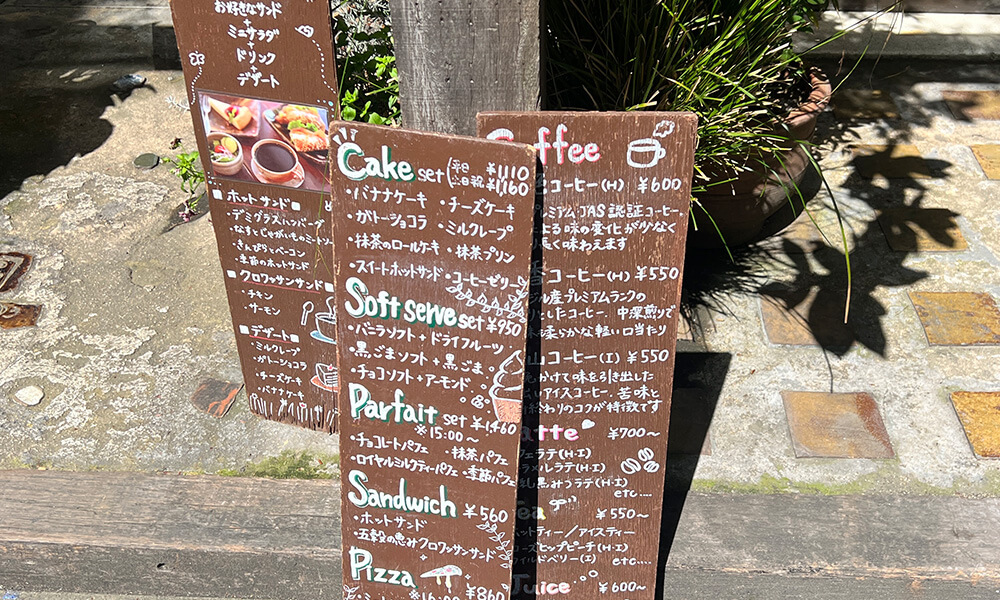 お好きなサンド
+
ミニサラダ
+
ドリンク
+
デザート
■ホットサンド■
・デミグラスハンバーグ
・なすとじゃがいものミートソー
・きんぴらとベーコン
・季節のホットサンド
■クロワッサンサンド■
・チキン
・サーモン
■デザート■
・ミルクレープ
・ガトーショコラ
・チーズケーキ
・バナナケーキ
Cake set 平日 ¥1110
土日祝 ¥1160
・バナナケーキ ・チーズケーキ
・ガトーショコラ ・ミルクレープ
・抹茶のロールケーキ ・抹茶プリン
・スイートホットサンド ・コーヒーゼリー
Soft serve set ¥950
・バニラソフト + ドライフルーツ
・黒ごまソフト + 黒ごま
・チョコソフト + アーモンド
Parfait set ¥1,460
※15:00〜
・チョコレートパフェ ・抹茶パフェ
・ロイヤルミルクティーパフェ ・季節パフェ
Sandwich ¥560
・ホットサンド
・五穀の恵みクロワッサンサンド
Pizza
※16:00〜 ¥860
Coffee
コーヒー(H) ¥600
プレミアムJAS認証コーヒー。
よる味の変化が少なく
く味わえます
コーヒー(H) ¥550
ジル産プレミアムランクの
したコーヒー。中深煎りで
柔らかな軽い口当たり
山コーヒー(I) ¥550
かけて味を引き出した
いアイスコーヒー。苦味と
わりのコクが特徴です
Latte ¥700〜
フェラテ(H・I)
ラメルラテ(H・I)
黒みつラテ(H・I)
etc....
Tea ¥550〜
ホットティー/アイスティー
ーズヒップピーチ(H・I)
イルドベリー(I) etc....
Juice ¥600〜